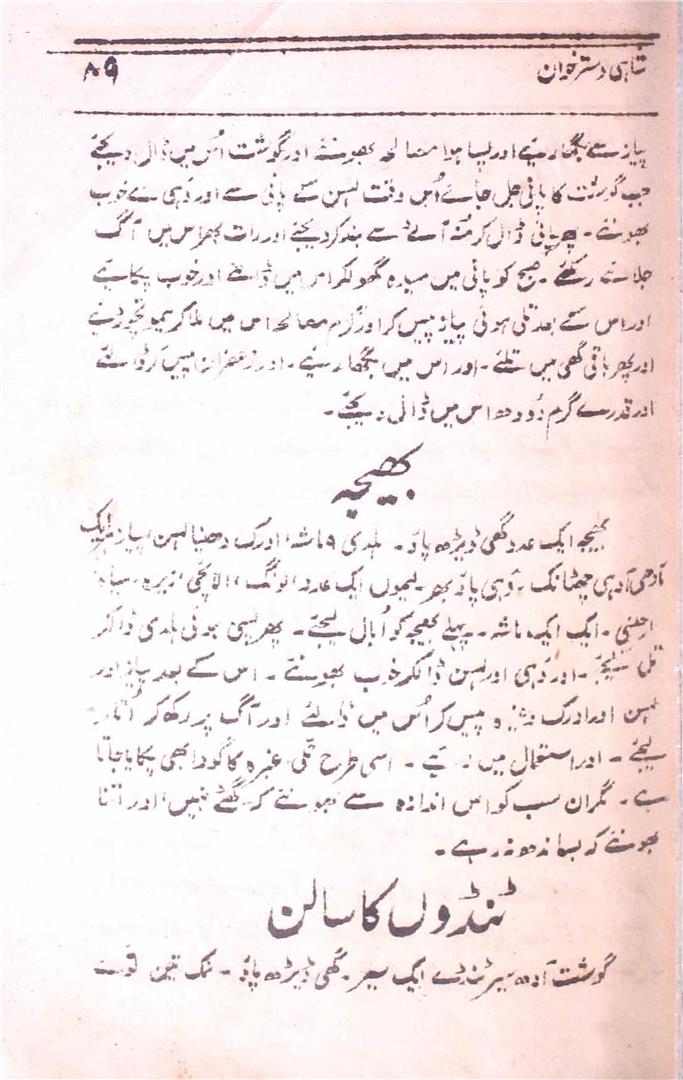 شاہی دسترخوان ۸۹
پیاز سے بگھاریئے اور پسا ہوا مصالحہ بھونئے اور گوشت اُس میں ڈال دیجئے
جب گوشت کا پانی جل جائے اُس وقت لہسن کے پانی سے اور دہی سے خوب
بھونئے - پھر پانی ڈال کر منہ آٹے سے بند کر دیجئے اور رات بھر اس میں آگ
جلائے رکھئے - صبح کو پانی میں میدہ گھولکر اس میں ڈالئے اور خوب پکائیے
اور اس کے بعد تلی ہوئی پیاز پیس کر اور گرم مصالحہ اس میں ملا کر لیمو نچوڑیئے
اور پھر باقی گھی میں تلئے - اور اس میں بگھاریئے - اور زعفران پیس کر ڈالئے
اور قدرے گرم دودھ اس میں ڈال دیجئے -
بھیجہ
بھیجہ ایک عدد گھی ڈیڑھ پاؤ - ہلدی ۹ ماشہ ادرک دھنیا لہسن پیاز ہر ایک
آدھی آدہی چھٹانک - دہی پاؤ بھر - لیموں ایک عدد لونگ، الائچی، زیرہ، سیاہ
مرچ - ایک ایک ماشہ - پہلے بھیجہ کو اُبال لیجئے - پھر پسی ہوئی ہلدی ڈالکر
تل لیجئے - اور دہی اور لہسن ڈالکر خوب بھونئے - اس کے بعد پیاز اور
لہسن اور ادرک وغیرہ پیس کر اُس میں ڈالئے اور آگ پر رکھ کر اُتار
لیجئے - اور استعمال میں لائیے - اسی طرح نلی وغیرہ کا گودا بھی پکایا جاتا
ہے - مگر ان سب کو اس اندازہ سے بھونئے کہ گھٹے نہیں، اور اتنا
بھونئے کہ بساندھ نہ رہے -
ٹنڈوں کا سالن
گوشت آدھ سیر ٹنڈے ایک سیر - گھی ڈیڑھ پاؤ - نمک تین تولے